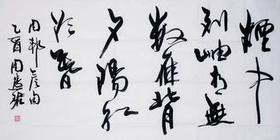 煙中
列岫青無
數雁背
夕陽紅
欲暮
周邦彦句
乙酉周